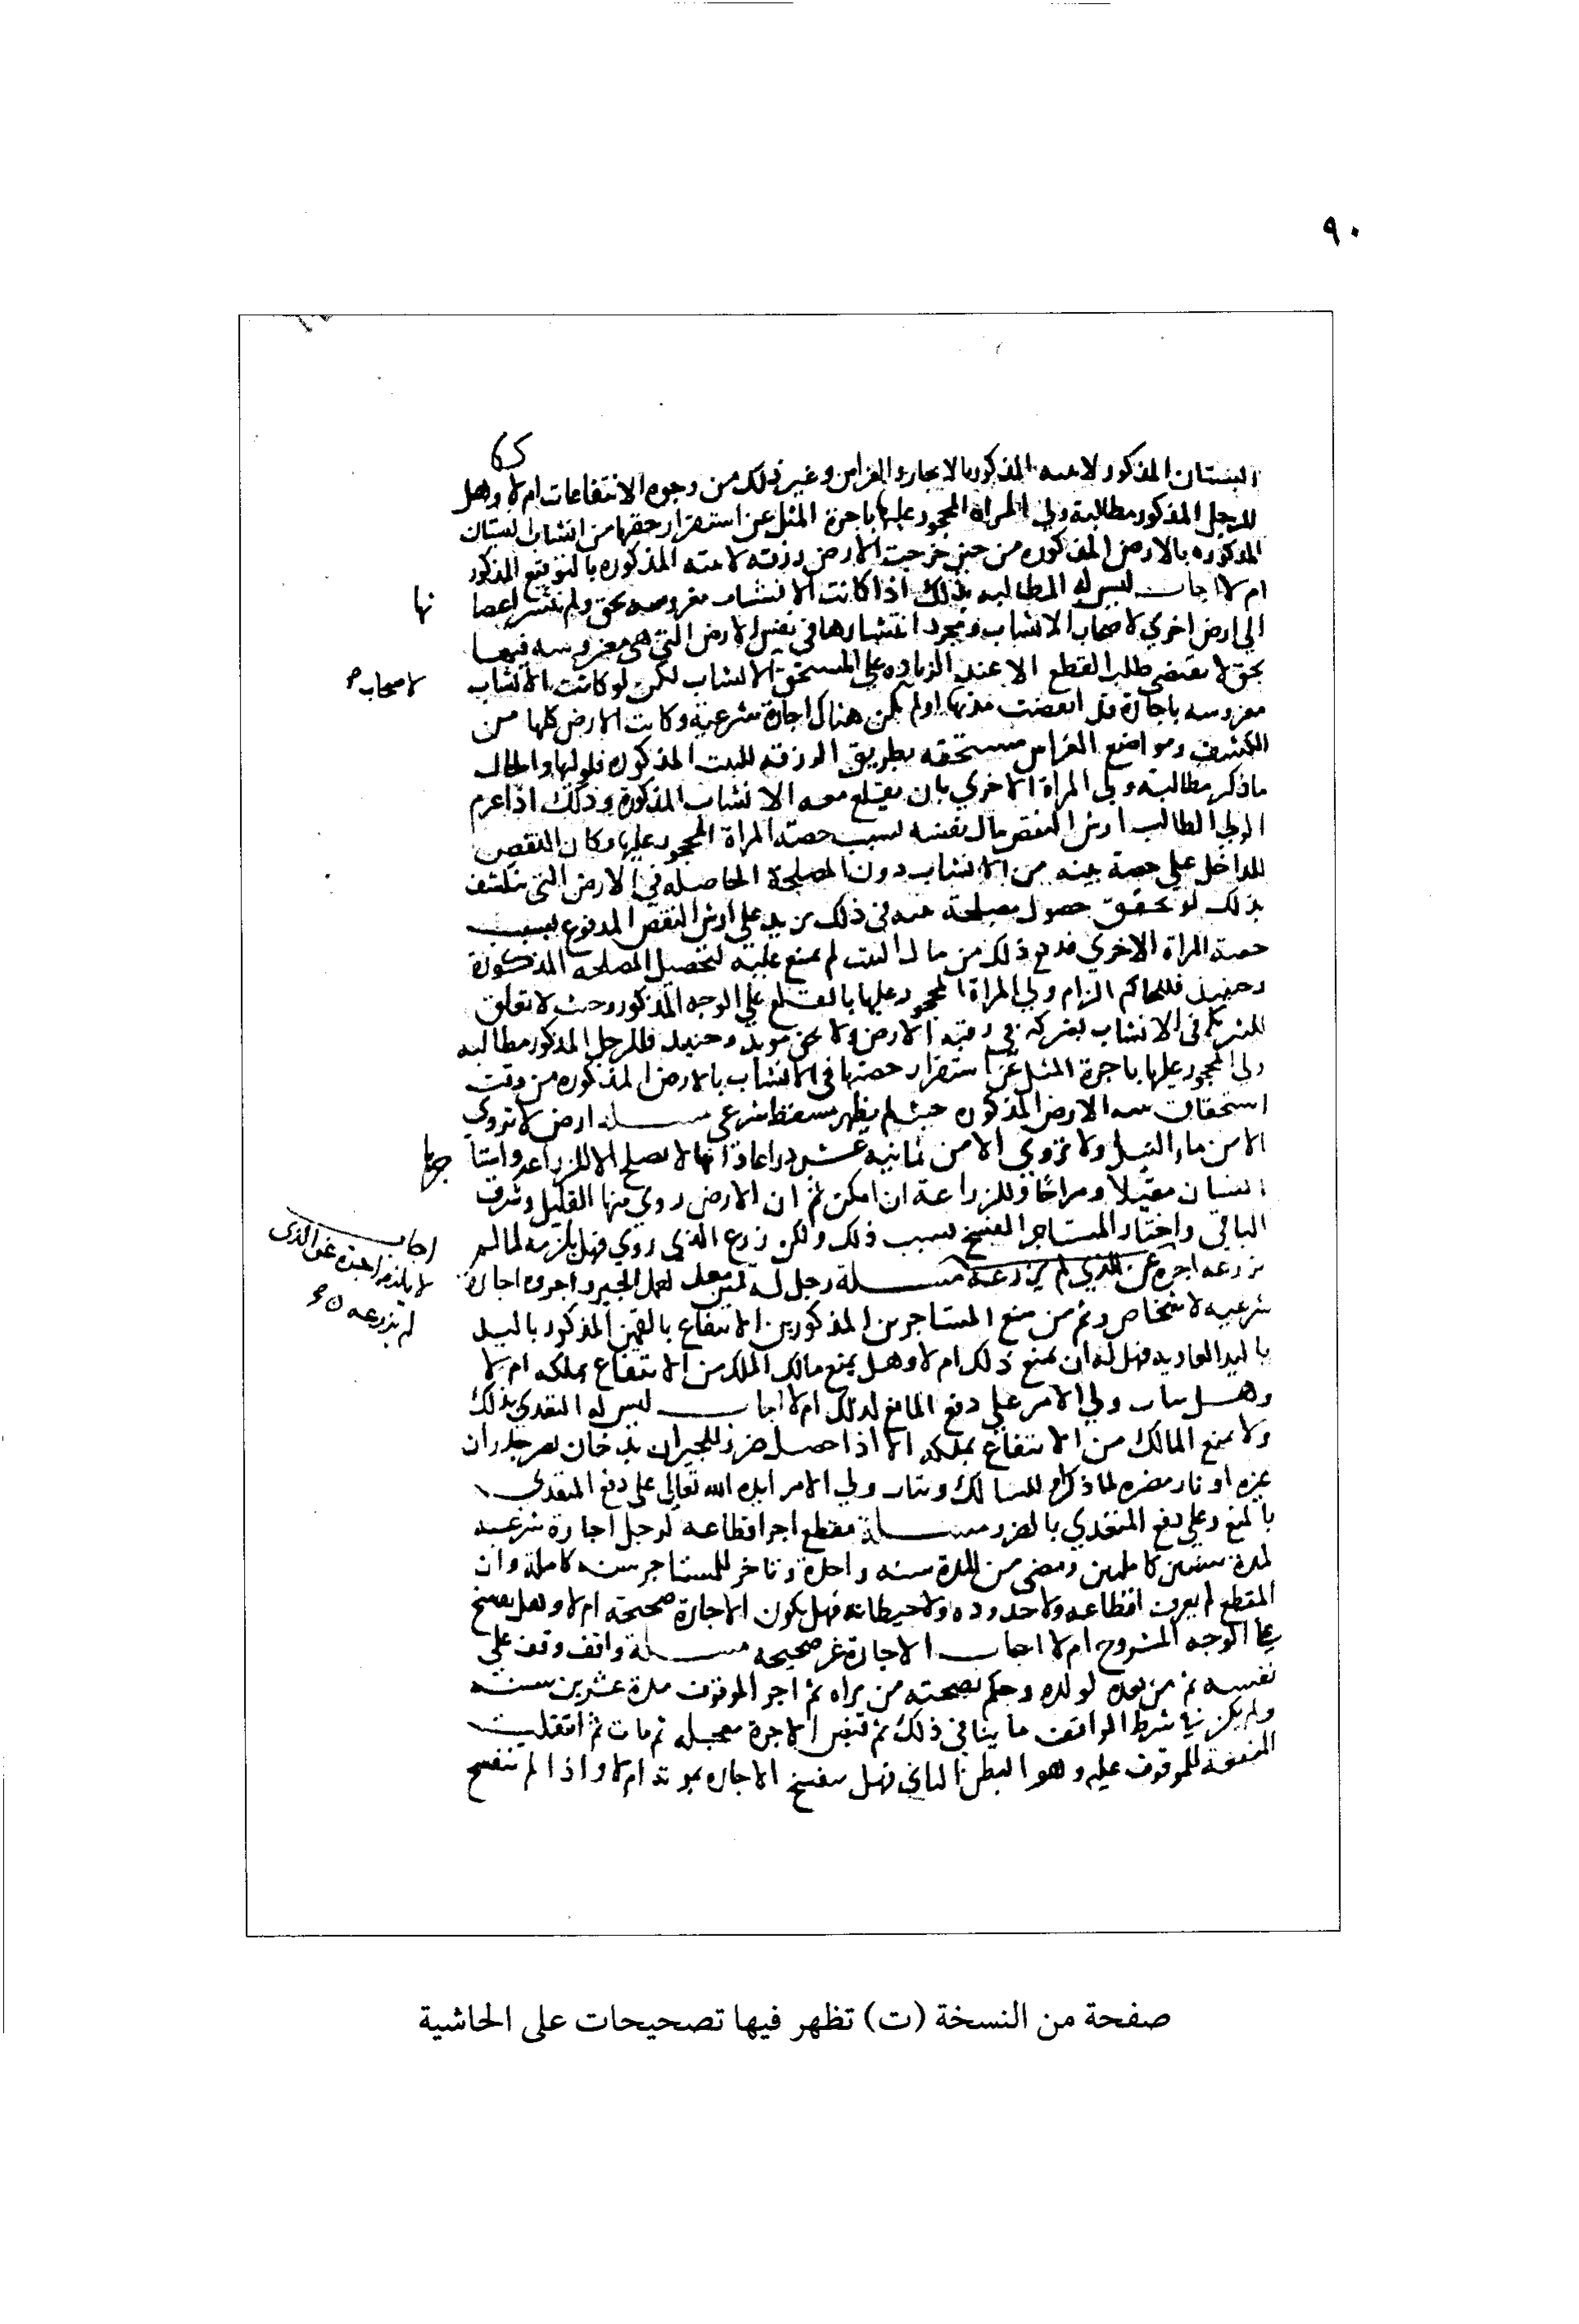 ٩٠
البستان المذكور لابنته المذكور بالايجار والغراس وغير ذلك من وجوه الانتفاعات ام لا وهل
للرجل المذكور مطالبة ولي المراة المحجور عليها باجرة المثل عن استقرار حقها من انشاب البستان
المذكوره بالارض المذكوره من حين خرجت الارض رزقه لابنته المذكوره بالتوقيع المذكور
ام لا اجاب ليس له المطالبه بذلك اذا كانت الانشاب مغروسه بحق ولم تنتشر اغصا
نها
الي ارض اخري لاصحاب الانشاب ومجرد انتشارها في نفس الارض التي هي مغروسه فيها
بحق لا يقتضي طلب القطع الا عند الزياده علي المستحق الانشاب لكن لو كانت الانشاب
لاصحاب
مغروسه باجارة قد انقضت مدتها او لم يكن هناك اجارة شرعية وكانت الارض كلها من
الكشف ومواضع الغراس مستحقه بطريق الرزقه للبنت المذكوره فلوليها والحال
ما ذكر مطالبة ولي المراة الاخري بان يقتلع معه الانشاب المذكورة وذلك اذا غرم
الولي الطالب ارش النقص مال نفسه بسبب حصة المراة المحجور عليها وكان النقص
الداخل علي حصة بنته من الانشاب دون المصلحة الحاصله في الارض التي تنكشف
بذلك لو تحقق حصول مصلحة في ذلك يزيد علي ارش النقص المدفوع بسبب
حصة المراة الاخري فدفع ذلك من مال البنت لم يمنع عليه لتحصيل المصلحه المذكورة
وحينيذ فللحاكم الزام ولي المراة المحجور عليها بالقلع علي الوجه المذكور وحيث لا تعلق
للشريك في الانشاب بشركه في رقبة الارض ولا بحق موبد وحينيذ فللرجل المذكور مطالبه
ولي المحجور عليها باجرة المثل عن استقرار حصتها في الانشاب بالارض المذكوره من وقت
استحقاق بنته الارض المذكوره حيث لم يظهر مسقط شرعي مسلة ارض لا تروي
الا من ماء النيل ولا تروي الا من ثمانيه عشر ذراعا فانها لا تصلح الا للزراعه واستا
جرها
انسان مقيلا ومراحا وللزراعة ان امكن ثم ان الارض روي منها القليل وشرق
الباقي واختار المستاجر الفسخ بسبب ذلك ولكن زرع الذي روي فهل يلزمه لما لم
يزرعه اجره عن الذي لم يزرعه مسلة رجل له قمين معد لعمل الجير واجره اجارة
اجاب
لا يلزمه اجرة عن الذي
لم يزرعه
شرعيه لاشخاص وثم من منع المستاجرين المذكورين الانتفاع بالقمين المذكور باليد
باليد العاديه فهل له ان يمنع ذلك ام لا وهل يمنع مالك الملك من الانتفاع بملكه ام لا
وهل يثاب ولي الامر علي دفع المانع لذلك ام لا اجاب ليس له التعدي بذلك
ولا يمنع المالك من الانتفاع بملكه الا اذا حصل ضرر للجيران بدخان يضر بجدران
غيره او نار مضره لما ذكر او للسالك ويثاب ولي الامر ايده الله تعالي علي دفع المتعدي
بالمنع وعلي دفع المتعدي بالضرر مسلة مقطع اجر اقطاعه لرجل اجارة شرعيه
لمدة سنتين كاملتين ومضي من المدة سنه واحدة وتاخر للمستاجر سنه كاملة وان
المقطع لم يعرف اقطاعه ولا حدوده ولا حيطانه فهل يكون الاجارة صحيحة ام لا وهل يفسخ
علي الوجه المشروح ام لا اجاب الاجارة غير صحيحه مسلة واقف وقف علي
نفسه ثم من بعده لولده وحكم بصحته من يراه ثم اجر الموقوف مدة عشرين سنة
ولم يكن في شرط الواقف ما ينافي ذلك ثم قبض الاجرة معجله ثم مات ثم انتقلت
المنفعة للموقوف عليه وهو البطن الثاني فهل ينفسخ الاجاره بموته ام لا واذا لم تنفسخ
صفحة من النسخة (ت) تظهر فيها تصحيحات على الحاشية